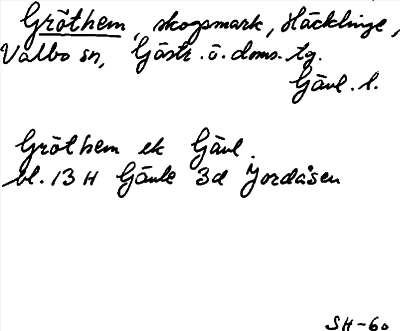 Gröthem, skogsmark, Häcklinge,
Valbo sn, Gästr. ö. doms. tg.
Gävl. l.
Gröthem ek Gävl.
bl. 13 H Gävle 3d Jordåsen
SH-60